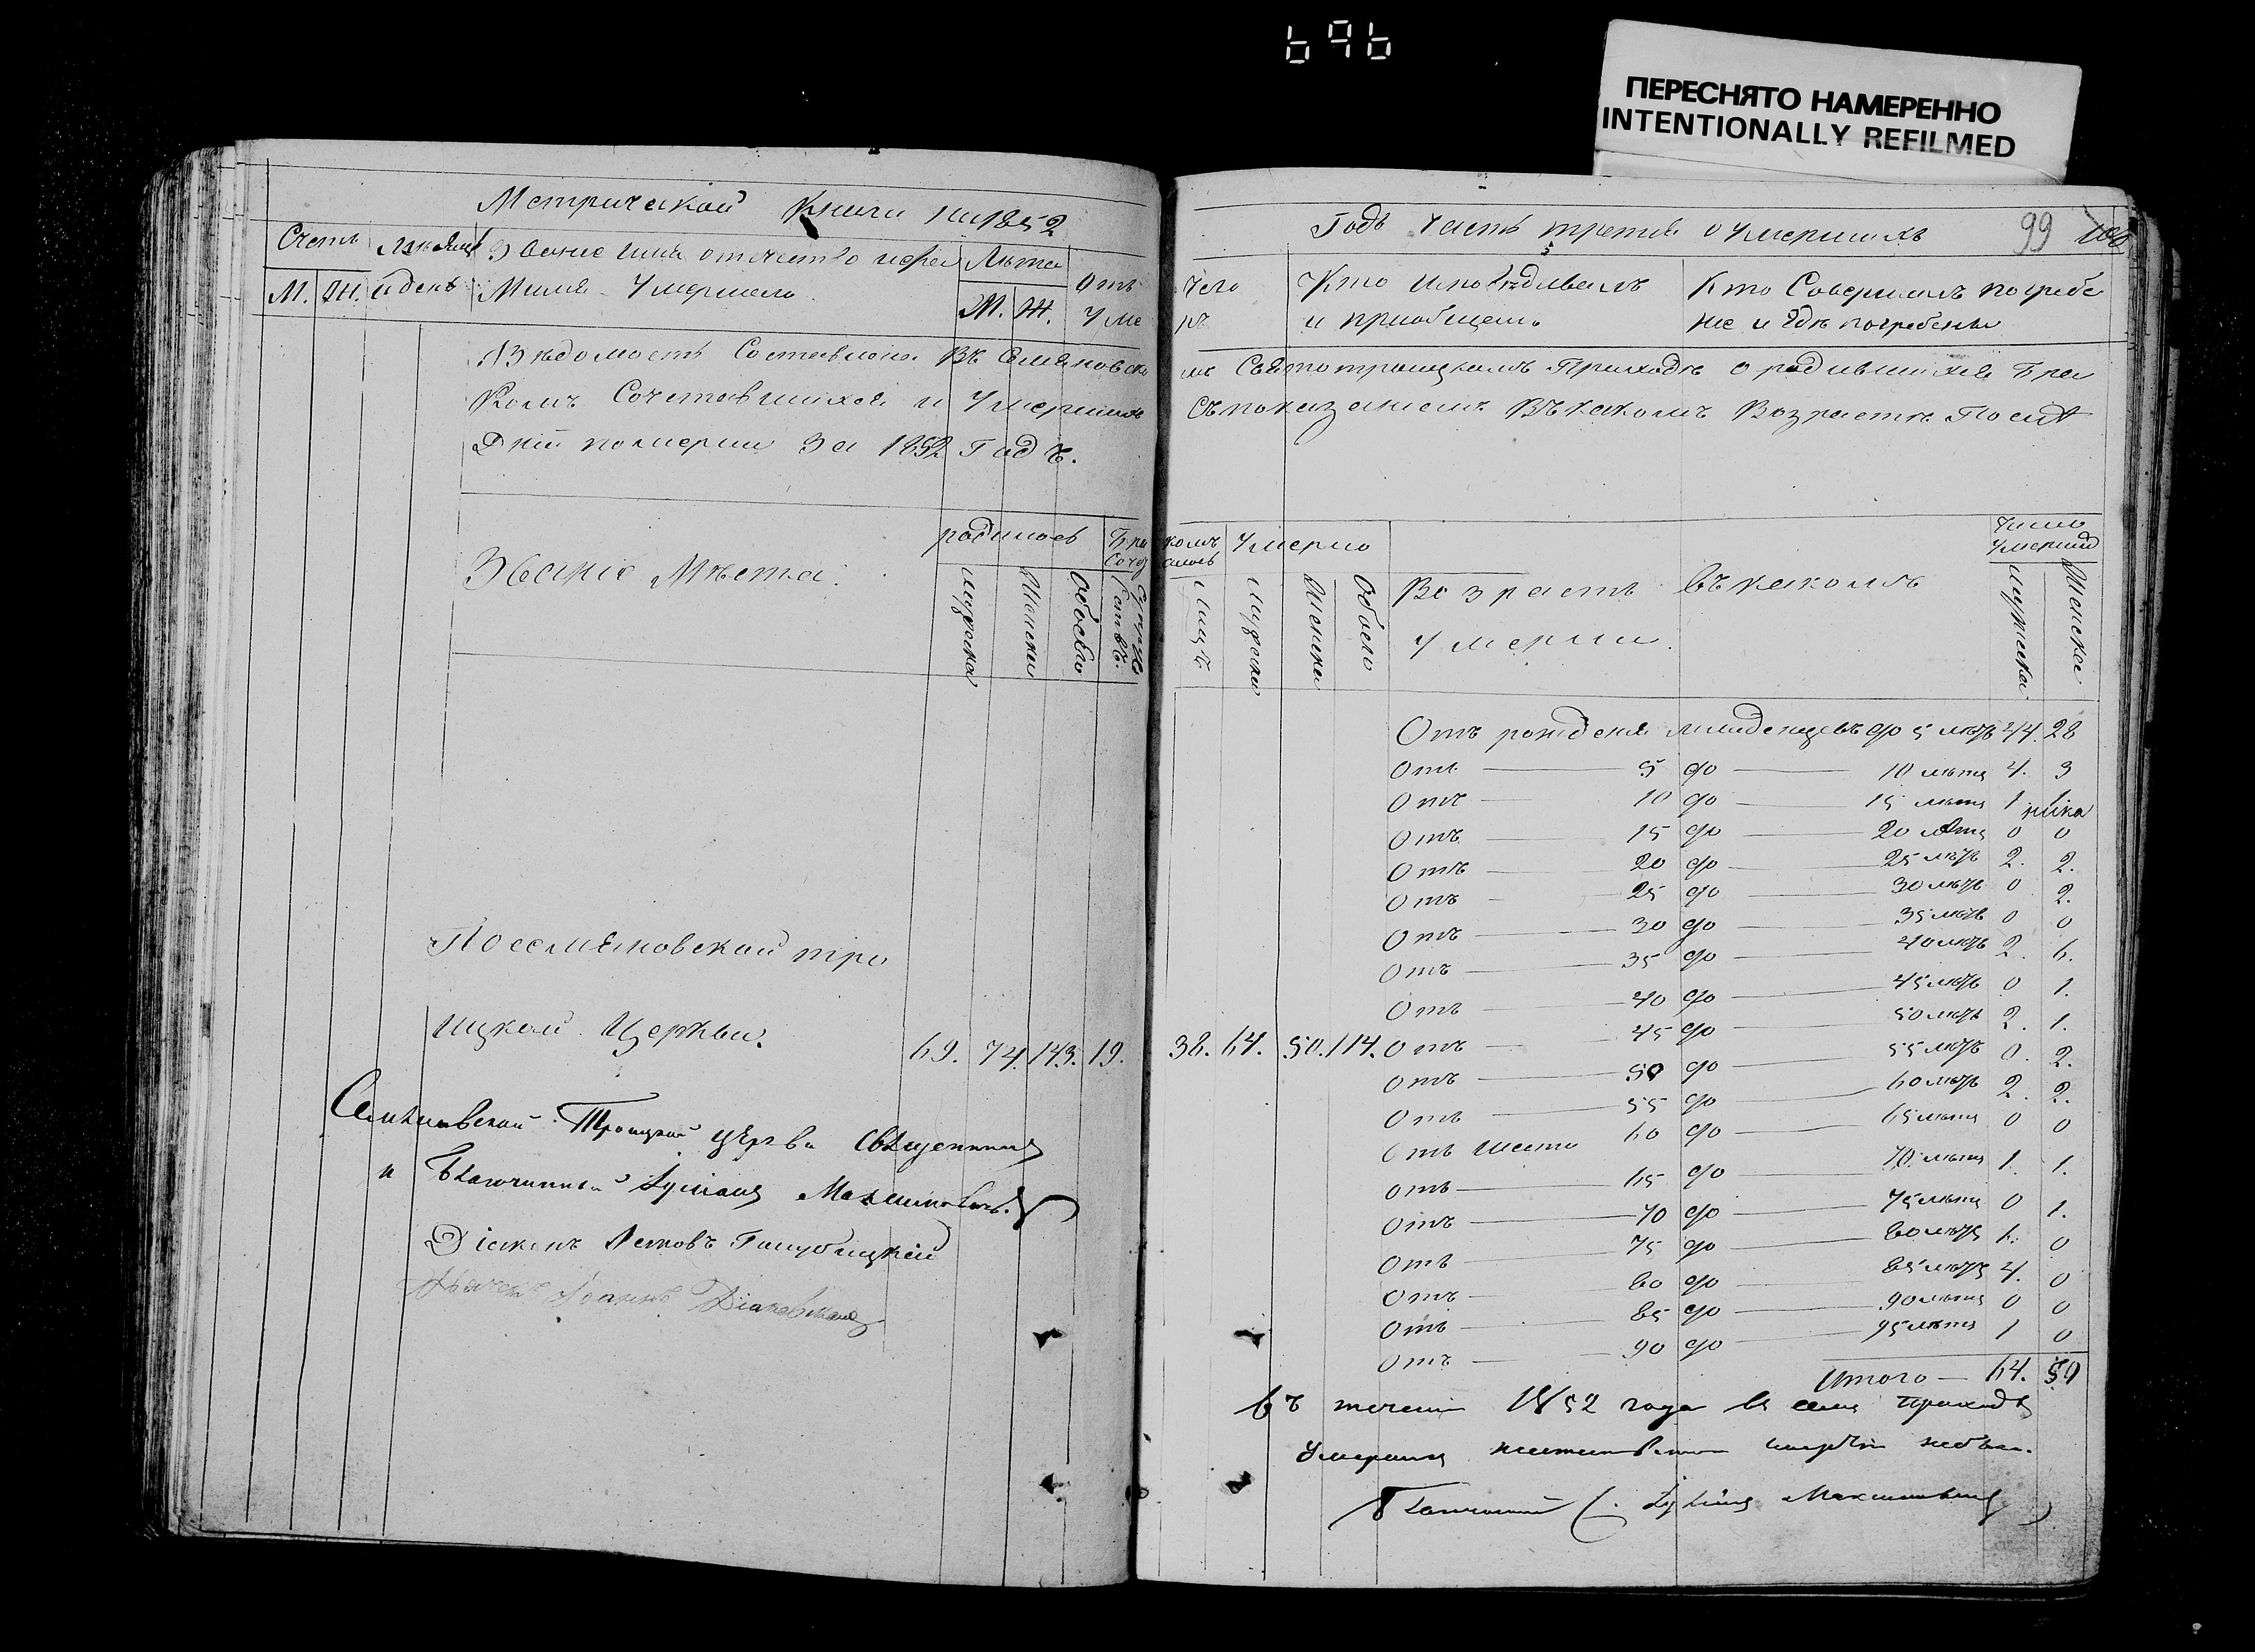 696
ПЕРЕСНЯТО НАМЕРЕННО
INTENTIONALLY REFILMED
Метрической Книги на 1852
Счетъ
М. Ж. и день
Звание имя отечество и фа
Милия Умершаго
Лѣта
М. Ж.
Отъ
Уме
Вѣдомость Составлена Въ Семяновско
Комъ Сочетавшихся и Умерших
Дній померли За 1852 Годъ.
Званіе Мѣста.
родилось
Мужеска
Женска
Обоего
Бра
Соче
Супру
По семяновской тро
ицкой Церкви.
69. 74. 143. 19.
Семяновской Троицкой церкви Священникъ
и Благочинный Максимовичъ.
Діаконъ Яковъ Голубицкій
Дьячекъ Іоаннъ
Годъ Часть третья о Умершихъ
99
100
Чего
ръ
Кто Исповѣдывалъ
и приобщалъ
Кто Совершалъ погребе
ние и Гдѣ погребены
мъ Святотроицкомъ Приходѣ о родившихся Бра
Съ показаніемъ Въ какомъ Возрастѣ
комъ
алось
Лицъ
Умерло
Мужеска
Женска
Обоего
Возрастъ въ какомъ
умерли.
Число
Умерших
Мужеска
Женска
Отъ рожденія младенцевъ до 5 лѣтъ 44. 28
Отъ 5 до 10 лѣтъ 4. 3
Отъ 10 до 15 лѣтъ 1 1
Отъ 15 до 20 лѣтъ 0 0
Отъ 20 до 25 лѣтъ 2. 2.
Отъ 25 до 30 лѣтъ 0 2.
Отъ 30 до 35 лѣтъ 0 0
Отъ 35 до 40 лѣтъ 2. 6.
Отъ 40 до 45 лѣтъ 0 1.
38. 64. 50. 114. Отъ 45 до 50 лѣтъ 2. 1.
Отъ 50 до 55 лѣтъ 0. 2.
Отъ 55 до 60 лѣтъ 2. 2.
Отъ 60 до 65 лѣтъ 0 0
Отъ 65 до 70 лѣтъ 1. 1.
Отъ 70 до 75 лѣтъ 0 1.
Отъ 75 до 80 лѣтъ 1. 0
Отъ 80 до 85 лѣтъ 4. 0
Отъ 85 до 90 лѣтъ 0 0
Отъ 90 до 95 лѣтъ 1 0
Итого — 64. 50
Въ течении 1852 года въ семъ приходѣ
Умершихъ смертію небыло.
Благочинный Максимовичъ